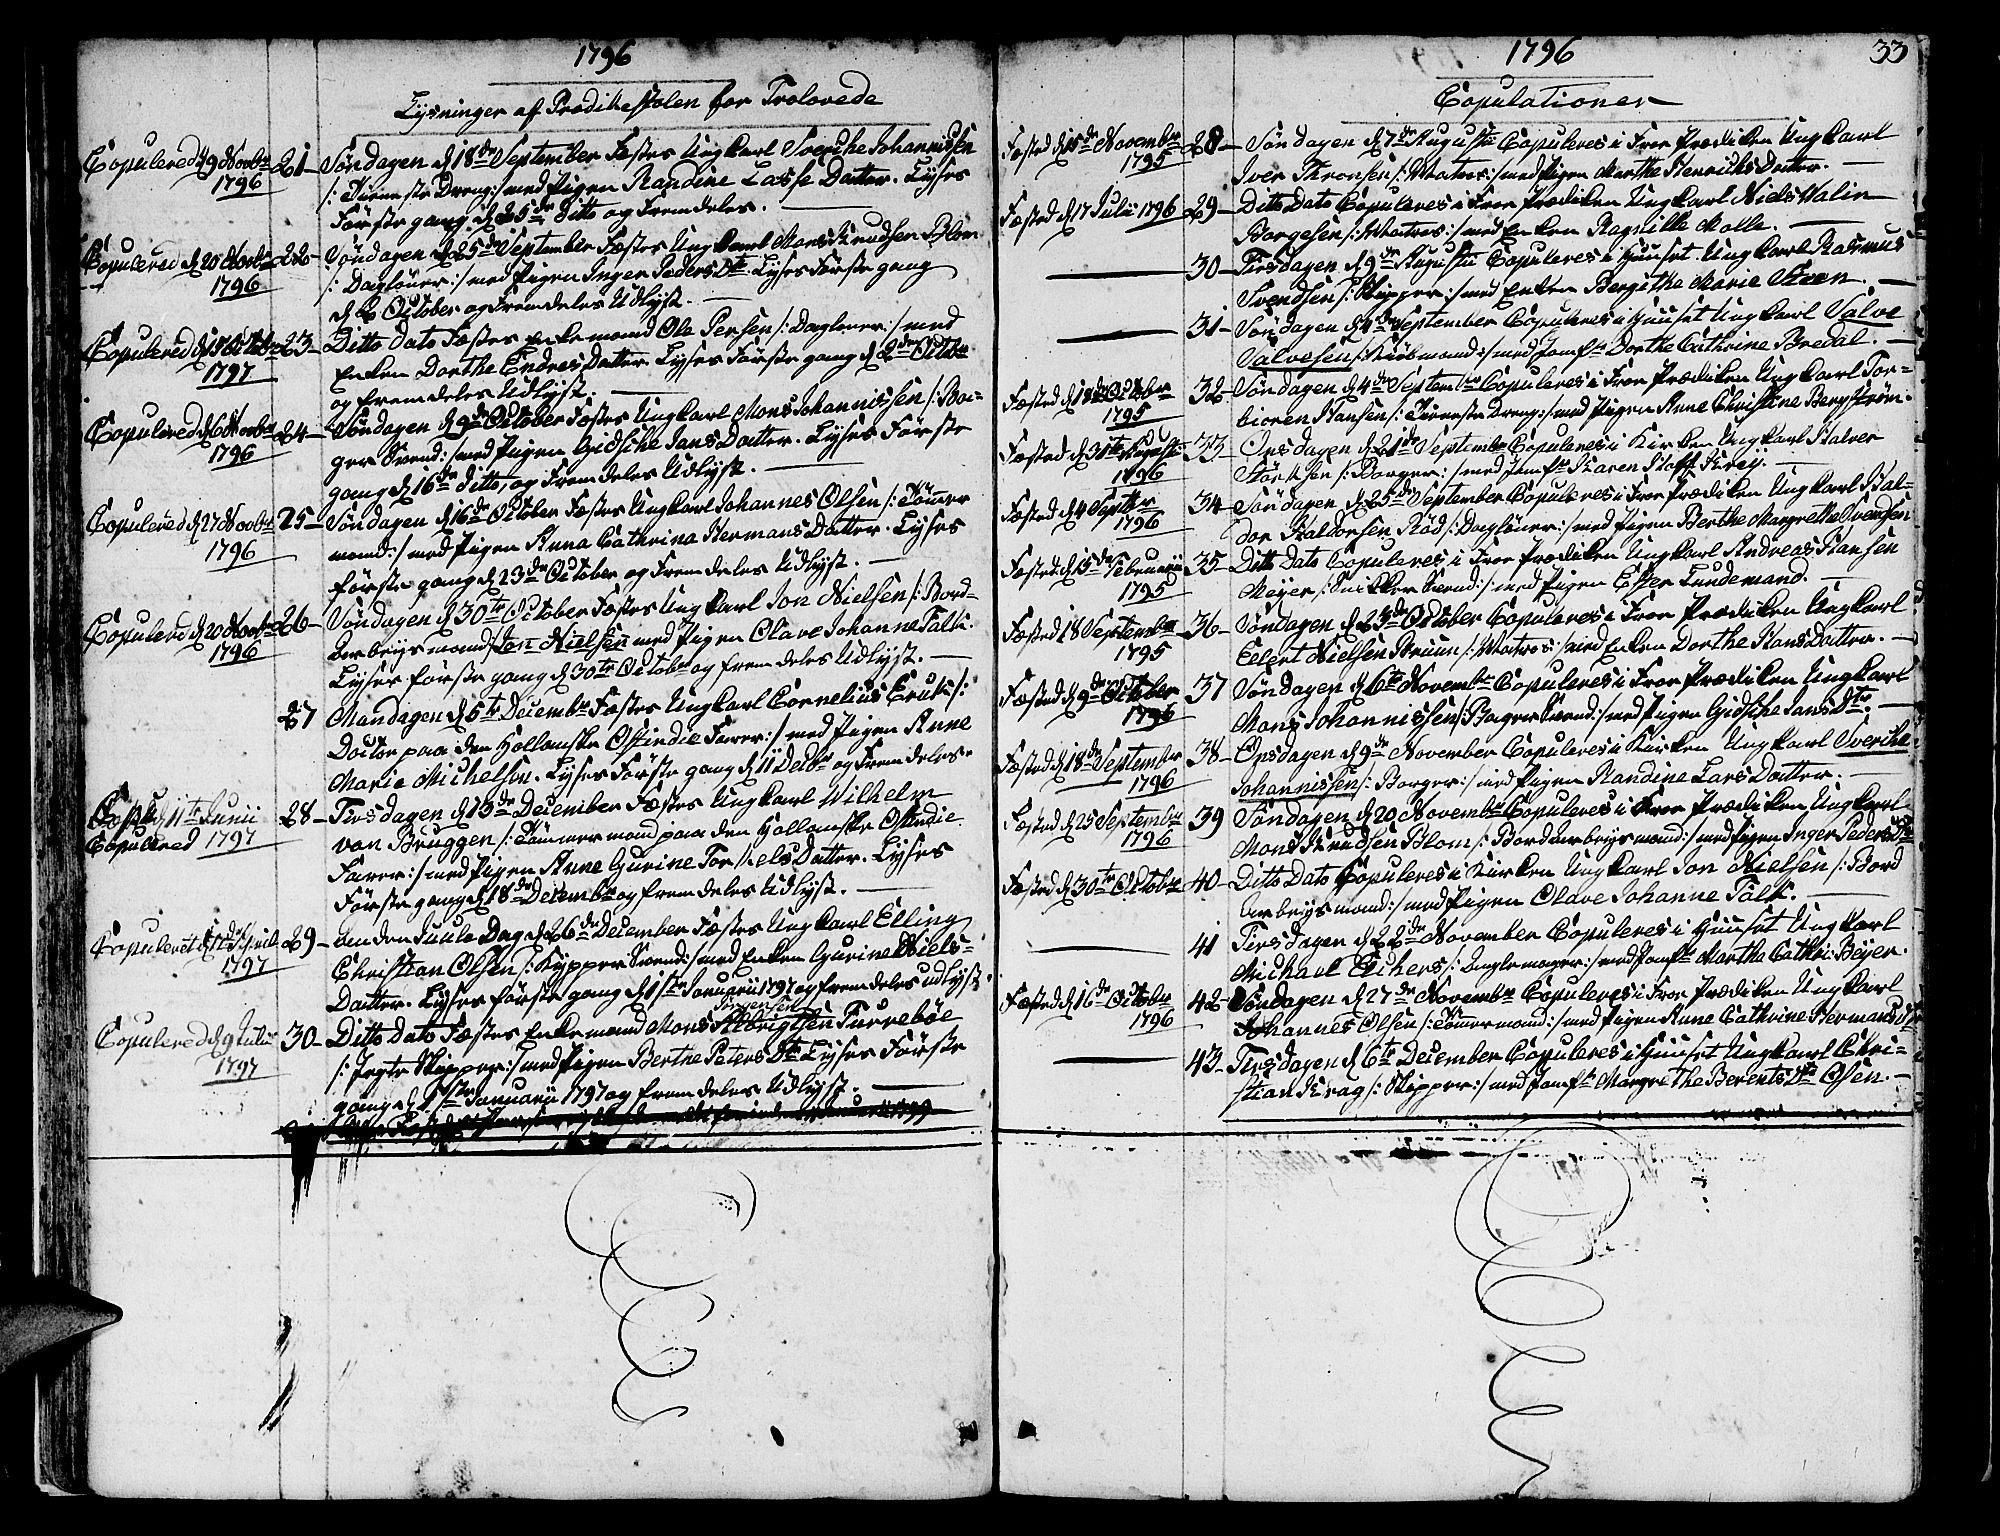 1796
Lysninger af Prædikestolen for Trolovede
Copulered d 9 Novbr 1796
21- Søndagen d 18de September Fæstes Ungkarl Sverche Johannissen
/: Tieneste Dreng:/ med Pigen Randine Lasse Datter. Lyses
Første gang d 25de ditto og Fremdeles.
Copulered d 20 Novbr 1796
22- Søndagen d 25de September Fæstes Ungkarl Mons Knudsen Blom
/: Dagløner:/ med Pigen Inger Peders Dtr Lyses Første gang
d 2 October og Fremdeles Udlyst.
Copulered d Octobr 1797
23- Ditto Dato Fæstes Enkemand Ole Persen /: Dagløner:/ med
Enken Dorthe Endres Datter Lyses Første gang d 2den Octobr
og fremdeles Udlyst.
Copulered d 6 Novbr 1796
24- Søndagen d 9de October Fæstes Ungkarl Mons Johannissen /: Ba-
ger Svend:/ med Pigen Gidsche Jans Datter. Lyses Første
gang d 16de ditto, og Fremdeles Udlyst.
Copulered d 27 Novbr 1796
25- Søndagen d 16de October Fæstes Ungkarl Johannes Olsen /: Tømmer
mand:/ med Pigen Anna Cathrina Hermans Datter. Lyses
første gang d 23de October og Fremdeles Udlyst.
Copulered d 20 Novbr 1796
26- Søndagen d 30te October Fæstes Ungkarl Jon Nielsen /: Bord-
arbeijsmand/ Jon Nielsen med Pigen Olave Johanne Falk.
Lyses første gang d 30te Octobr og fremdeles Udlyst.
27 Mandagen d 5te Decembr Fæstes Ungkarl Cornelius Cruk /:
Doctor paa den Hollanske Ostindie Farer:/ med Pigen Anne
Marie Michelsen. Lyses Første gang d 11 Decbr og Fremdeles.
d 11te Junii
Copulered 1797
28- Tirsdagen d 13de December Fæstes Ungkarl Wilhelm
van Bruggen /: Tømmermand paa den Hollanske Ostindie
Farer:/ med Pigen Anne Gurine Torkels Datter. Lyses
Første gang d 18de Decembr og fremdeles Udlyst.
Copuleret d 1797
29- Anden Juule Dag d 26de December Fæstes Ungkarl Elling
Christian Olsen /: Kypper Svend:/ med Enken Gurine Niels-
Datter. Lyses første gang d 1ste Januarii 1797 og fremdeles udlyst
Copulered d 9 Julii 1797
30- Ditto Dato Fæstes Enkemand Mons Albrigtsen Turrebøe
/: Jegte Skipper:/ med Pigen Berthe Peters Dtr Lyses Første
gang d 1ste Januarii 1797 og fremdeles Udlyst.
1796
33
Copulationer
Fæsted d 15de Novembr 1795
28- Søndagen d 7de Augustii Copuleres i Froe Prædiken Ungkarl
Iver Thronsen /: Matros:/ med Pigen Marthe Henrichs Datter.
Fæsted d 17 Julii 1796
29- Ditto Dato Copuleres i Froe Prædiken Ungkarl Niels Valin
Borgesen /: Matros:/ med Enken Ragnille Molle.
30- Tirsdagen d 9de Augustii Copuleres i Huuset Ungkarl Rasmus
Svendsen /: Skipper:/ med Enken Bergithe Marie Steen.
31- Søndagen d 4de September Copuleres i Huuset Ungkarl Salve
Salvesen /: Kiøbmand:/ med Jomfr Dorthe Cathrine Bredal.
Fæsted d 18 October 1795
32- Søndagen d 4de Septembr Copuleres i Froe Prædiken Ungkarl Tor-
bioren Hansen /: Tieneste Dreng:/ med Pigen Anne Christine Bergstrøm.
Fæsted d 31te Augusti 1796
33- Onsdagen d 21de Septembr Copuleres i Kirken Ungkarl Halver
Størksen /: Borger:/ med Jomfr Karen Hoff Kreij.
Fæsted d 4 Septbr 1796
34- Søndagen d 25de September Copuleres i Froe Prædiken Ungkarl Hal-
dor Haldorsen Rød /: Dagløner:/ med Pigen Berthe Margrethe Svendsen
Fæsted d 15de Februarii 1795
35- Ditto Dato Copuleres i Froe Prædiken Ungkarl Andreas Hansen
Meyer /: Snikker Svend:/ med Pigen Ester Lundemand.
Fæsted 18 Septembr 1795
36- Søndagen d 23de October Copuleres i Froe Prædiken Ungkarl
Eilert Nielsen Bruun /: Matros:/ med Enken Dorthe Hans Datter.
Fæsted d 9de October 1796
37 Søndagen d 6te Novembr Copuleres i Froe Prædiken Ungkarl
Mons Johannissen /: Bager Svend:/ med Pigen Gidsche Jans Dtr.
Fæsted d 18de September 1796
38- Onsdagen d 9de November Copuleres i Kirken Ungkarl Sverike
Johannissen /: Borger:/ med Pigen Randine Lars Datter.
Fæsted d 25 September 1796
39 Søndagen d 20 Novembr Copuleres i Froe Prædiken Ungkarl
Mons Knudsen Blom /: Bordarbeijsmand:/ med Pigen Inger Peders Dtr
Fæsted d 30te Octobr
40- Ditto Dato Copuleres i Kirken Ungkarl Jon Nielsen /: Bord
arbeijsmand:/ med Pigen Olave Johanne Falk.
41 Tirsdagen d 22de November Copuleres i Huuset Ungkarl
Michael Eichers /: med Jomfr Martha Cathri: Beyer.
Fæsted d 16de Octobr 1796
42- Søndagen d 27de Novembr Copuleres i Froe Prædiken Ungkarl
Johannes Olsen /: Tømmermand:/ med Pigen Anne Cathrine Hermans Dtr
43- Tirsdagen d 6te December Copuleres i Huuset Ungkarl Chri-
stian Krag /: Skipper:/ med Jomfr Margrethe Berents Dtr Olsen.